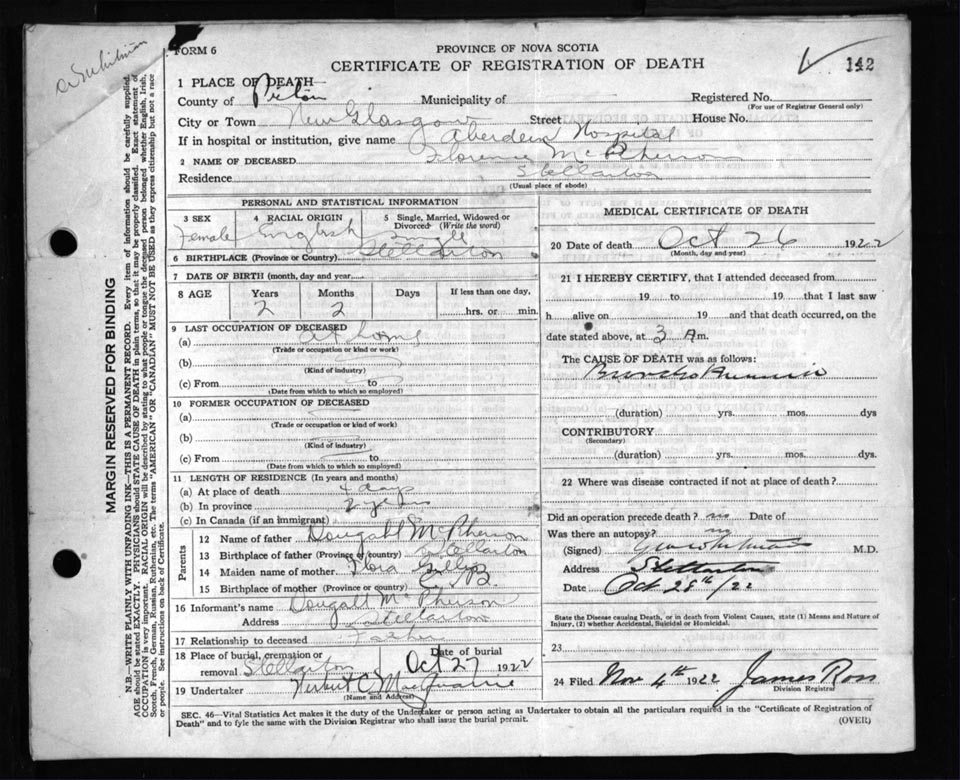 G Whitman
FORM 6
PROVINCE OF NOVA SCOTIA
CERTIFICATE OF REGISTRATION OF DEATH
142
1 PLACE OF DEATH
County of Pictou Municipality of Registered No.
(For use of Registrar General only)
City or Town New Glasgow Street House No.
If in hospital or institution, give name Aberdeen Hospital
2 NAME OF DECEASED Florence McPherson
Residence Stellarton
(Usual place of abode)
PERSONAL AND STATISTICAL INFORMATION
3 SEX 4 RACIAL ORIGIN 5 Single, Married, Widowed or Divorced (Write the word)
Female English Single
6 BIRTHPLACE (Province or Country) Stellarton
7 DATE OF BIRTH (month, day and year)
8 AGE Years Months Days If less than one day,
2 2 hrs. or min.
9 LAST OCCUPATION OF DECEASED
(a) at home
(Trade or occupation or kind or work)
(b)
(Kind of industry)
(c) From to
(Date from which to which so employed)
10 FORMER OCCUPATION OF DECEASED
(a)
(Trade or occupation or kind of work)
(b)
(Kind of industry)
(c) From to
(Date from which to which so employed)
11 LENGTH OF RESIDENCE (In years and months)
(a) At place of death days
(b) In province 2 years
(c) In Canada (if an immigrant)
Parents
12 Name of father Dougald McPherson
13 Birthplace of father (Province or country) Stellarton
14 Maiden name of mother Flora Gillis
15 Birthplace of mother (Province or country) C.B.
16 Informant's name Dougald McPherson
Address Stellarton
17 Relationship to deceased Father
18 Place of burial, cremation or removal Stellarton Date of burial Oct 27 1922
19 Undertaker Herbert C
(Name and Address)
MEDICAL CERTIFICATE OF DEATH
20 Date of death Oct 26 1922
(Month, day and year)
21 I HEREBY CERTIFY, that I attended deceased from
19 to 19 that I last saw
h alive on 19 and that death occurred, on
date stated above, at 3 A m.
The CAUSE OF DEATH was as follows:
Broncho Pneumonia
(duration) yrs. mos. dys
CONTRIBUTORY
(Secondary)
(duration) yrs. mos. dys.
22 Where was disease contracted if not at place of death?
Did an operation precede death? no Date of
Was there an autopsy? no
(Signed) Whitman M.D.
Address Stellarton
Date Oct 28th/22
State the Disease causing Death, or in Death from Violent Causes, state (1) Means and Nature of Injury, (2) whether Accidental, Suicidal or Homicidal.
23
24 Filed Nov 4th 1922 James Ross
Division Registrar
SEC. 46—Vital Statistics Act makes it the duty of the Undertaker or person acting as Undertaker to obtain all the particulars required in the "Certificate of Registration of
Death" and to fyle the same with the Division Registrar who shall issue the burial permit.
(OVER)
MARGIN RESERVED FOR BINDING
N.B.—WRITE PLAINLY WITH UNFADING INK—THIS IS A PERMANENT RECORD. Every item of information should be carefully supplied.
AGE should be stated EXACTLY. PHYSICIANS should STATE CAUSE OF DEATH in plain terms, so that it may be properly classified. Exact statement of
OCCUPATION is very important. RACIAL ORIGIN will be described by stating to what people or tongue the deceased person belonged whether English, Irish,
Scotch, French, German, Russian, Ruthenian, etc. The terms "AMERICAN" OR "CANADIAN" MUST NOT BE USED as they express citizenship but not a race
or people. See instructions on back of Certificate.